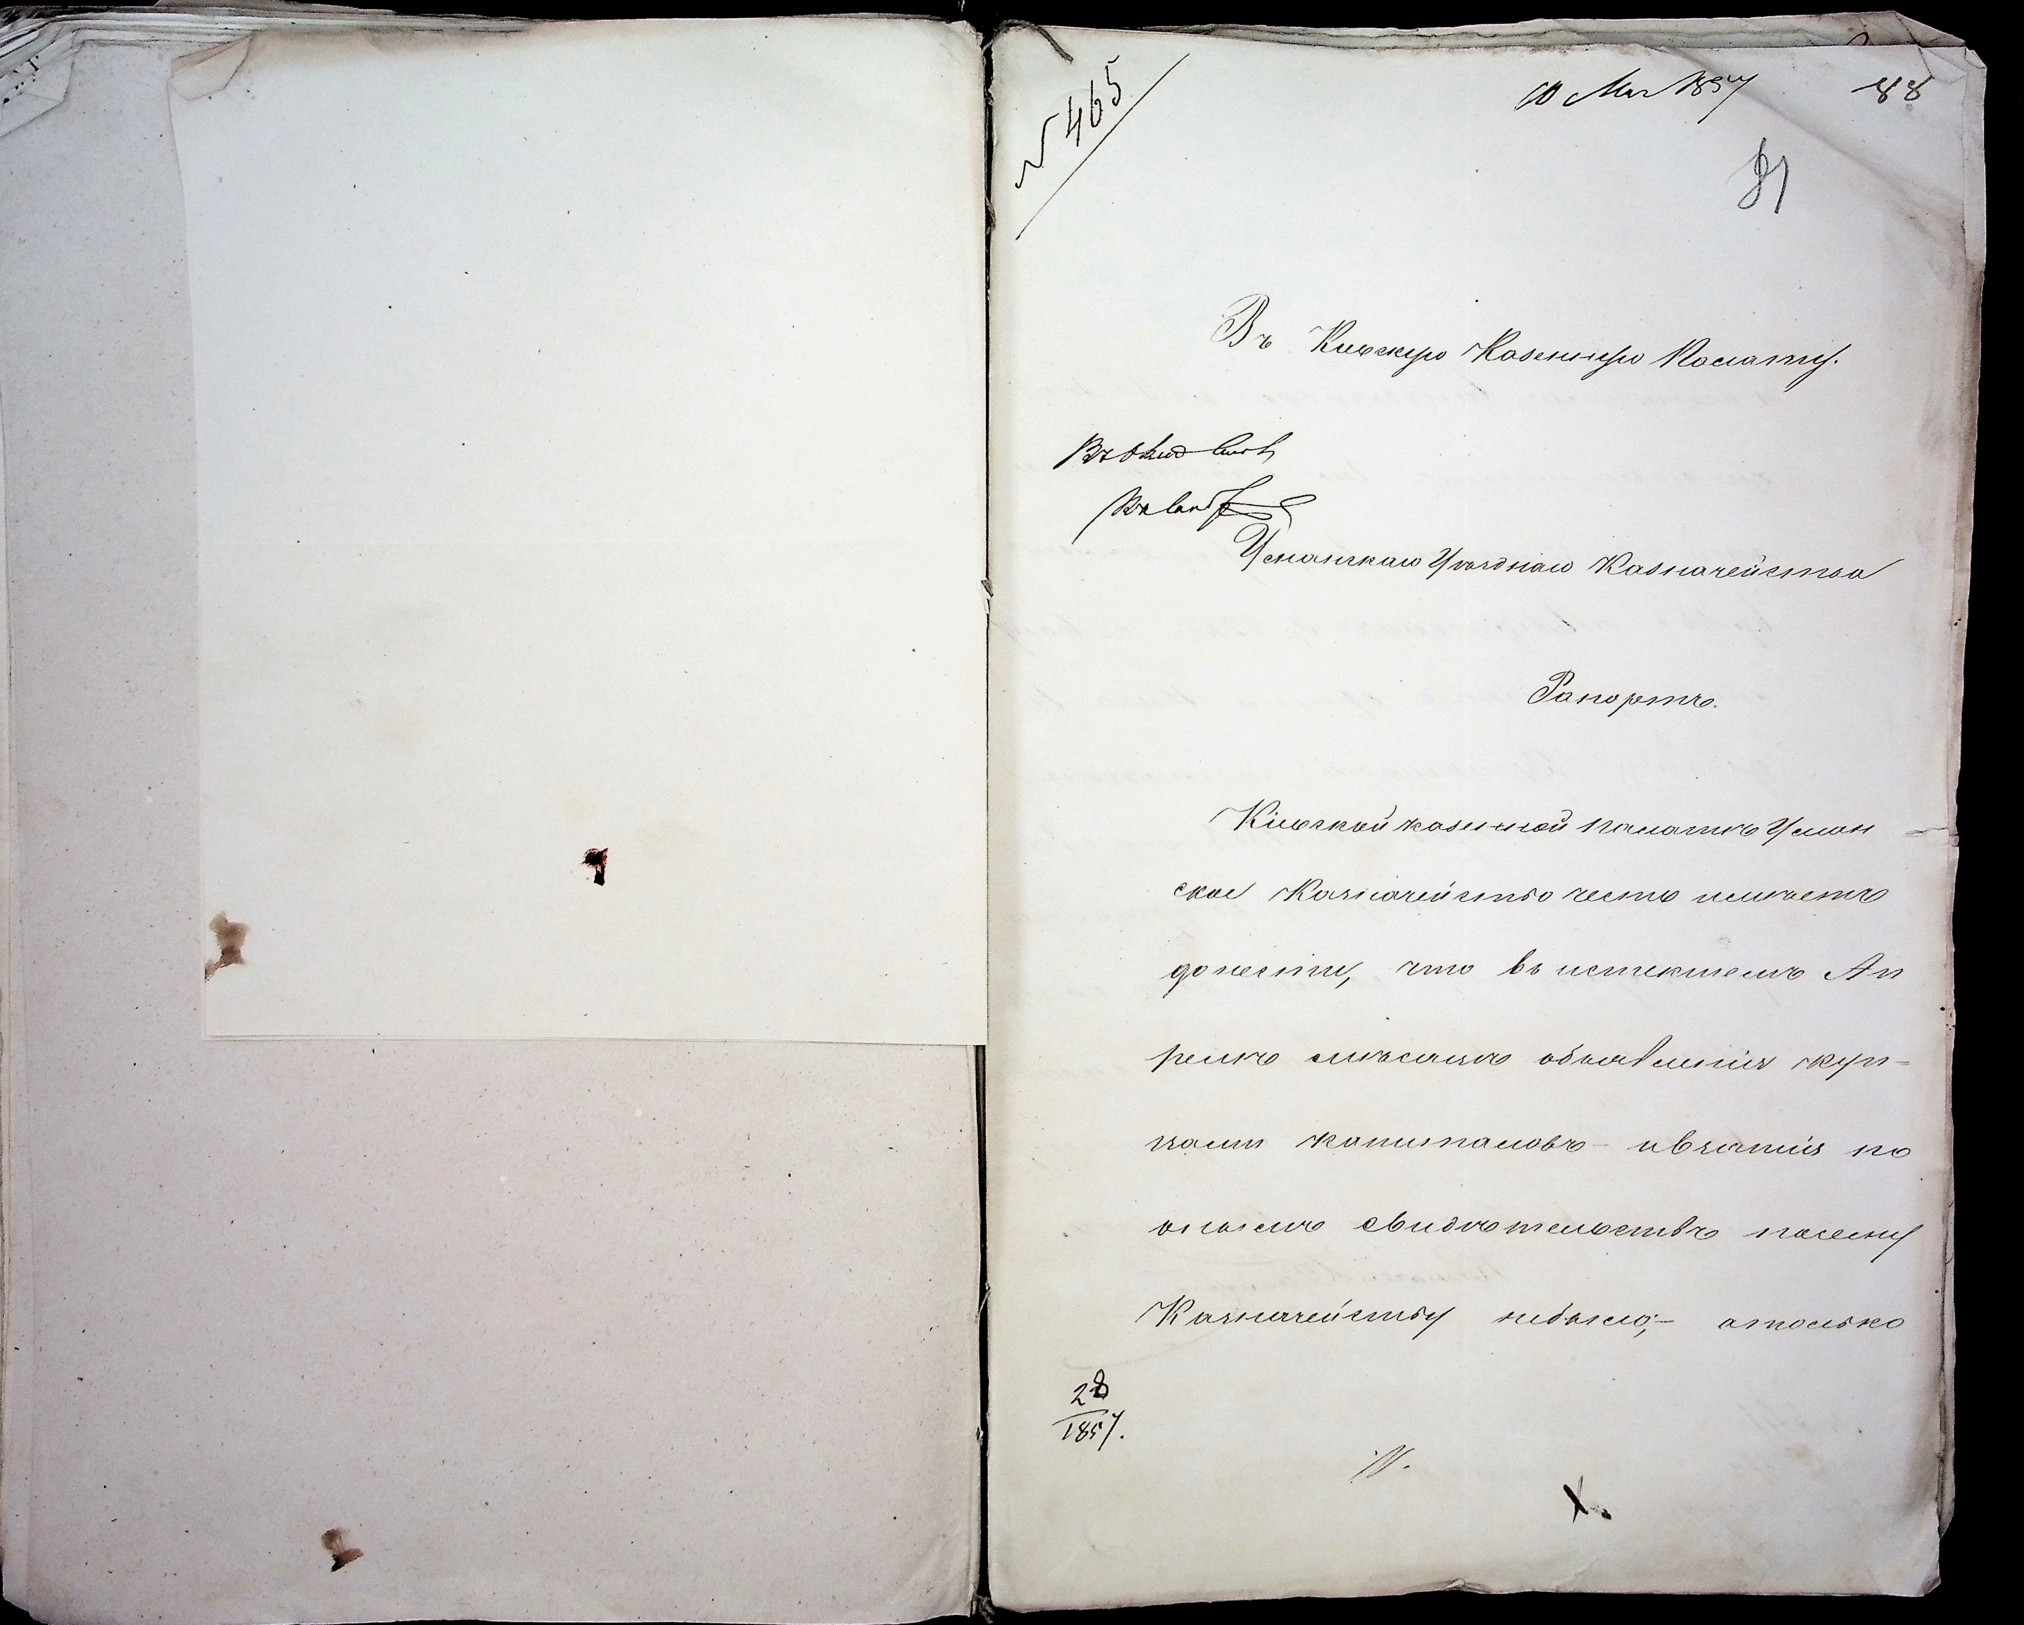 № 465
10 Мая 1857
88
81
Въ Киевскую Казенную Палату.
Уманскаго Уѣзднаго Казначейства
Рапортъ.
Кіевской казенной палатѣ Уман
ское Казначейство честь имѣетъ
донести, что въ истекшемъ Ап
релѣ мѣсяцѣ объявленія куп=
цами капиталовъ и взятія по
онымъ свидѣтельствъ посему
Казначейству небыло;- атолько
28
1857.